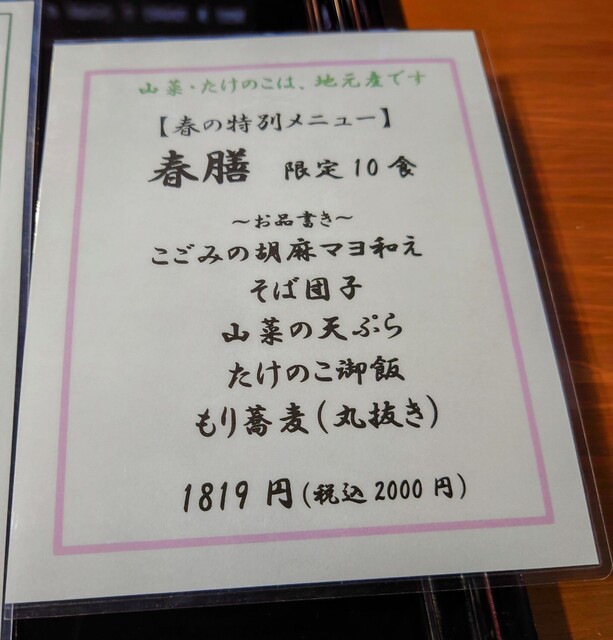 山菜・たけのこは、地元産です
【春の特別メニュー】
春膳 限定10食
～お品書き～
こごみの胡麻マヨ和え
そば団子
山菜の天ぷら
たけのこ御飯
もり蕎麦(丸抜き)
1819 円(税込2000円)